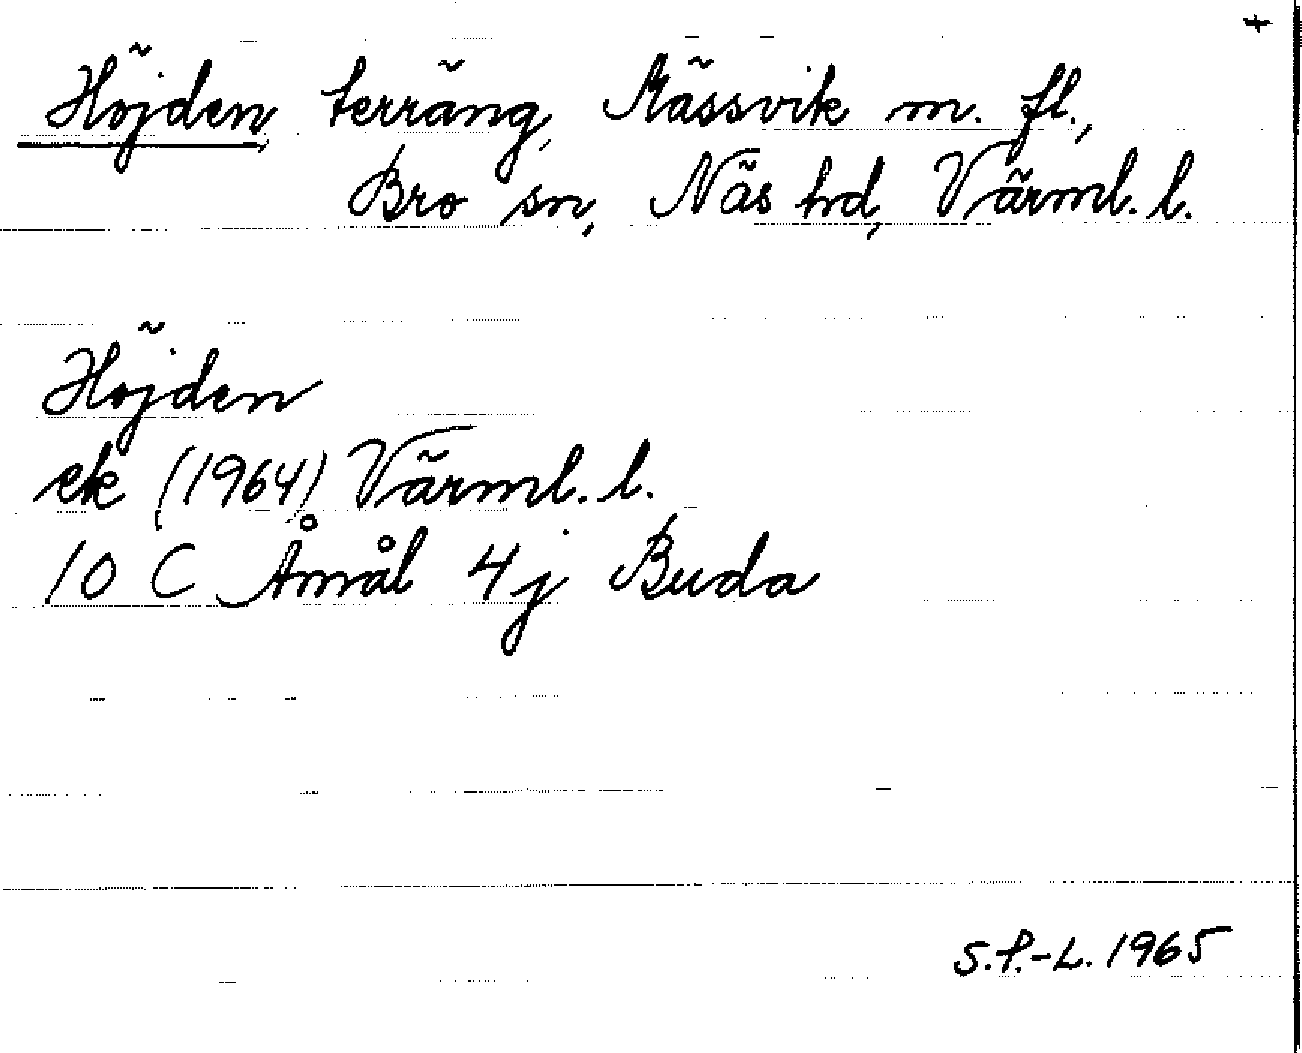 Höjden, terräng, Mässvik m. fl.,
Bro sn, Näs hd, Värml. l.
Höjden
ek (1964) Värml. l.
10 C Åmål 4j Buda
S.P.-L. 1965